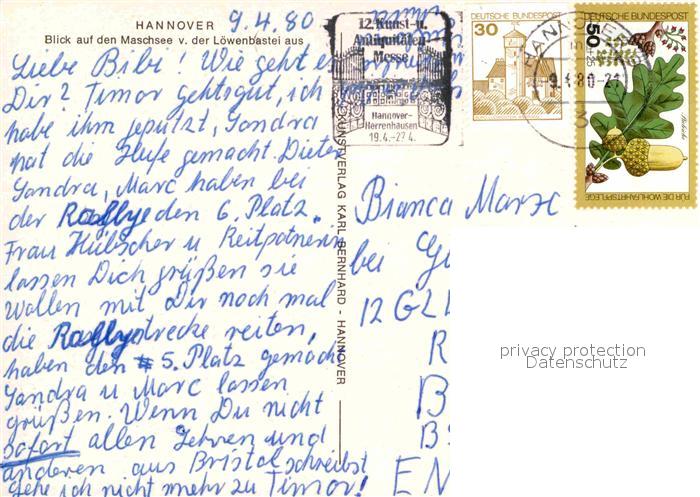 HANNOVER
Blick auf den Maschsee v. der Löwenbastei aus
9.4.80
Liebe Bibi! Wie geht es
Dir? Timor gehtsgut, ich
habe ihm geputzt, Sandra
hat die Hufe gemacht. Dieter
Sandra, Marc haben bei
der Rallye den 6. Platz.
Frau Hübscher u Reitpatnerin
lassen Dich grüßen sie
wollen mit Dir noch mal
die Rallystrecke reiten,
haben den 5. Platz gemacht
Sandra u Marc lassen
grüßen. Wenn Du nicht
sofort allen Lehren und
anderen aus Bristol schreibst
gehe ich nicht mehr zu Timor!
KUNSTVERLAG KARL BERNHARD - HANNOVER
12. Kunst- u.
Antiquitäten
Messe
Hannover-
Herrenhausen
19.4.-27.4.
DEUTSCHE BUNDESPOST
30
HANNOVER
9.4.80-21
3
DEUTSCHE BUNDESPOST
50
+25
FÜR DIE WOHLFAHRTSPFLEGE
Bianca Marx
bei
12 GL
R
B
B
EN
privacy protection
Datenschutz